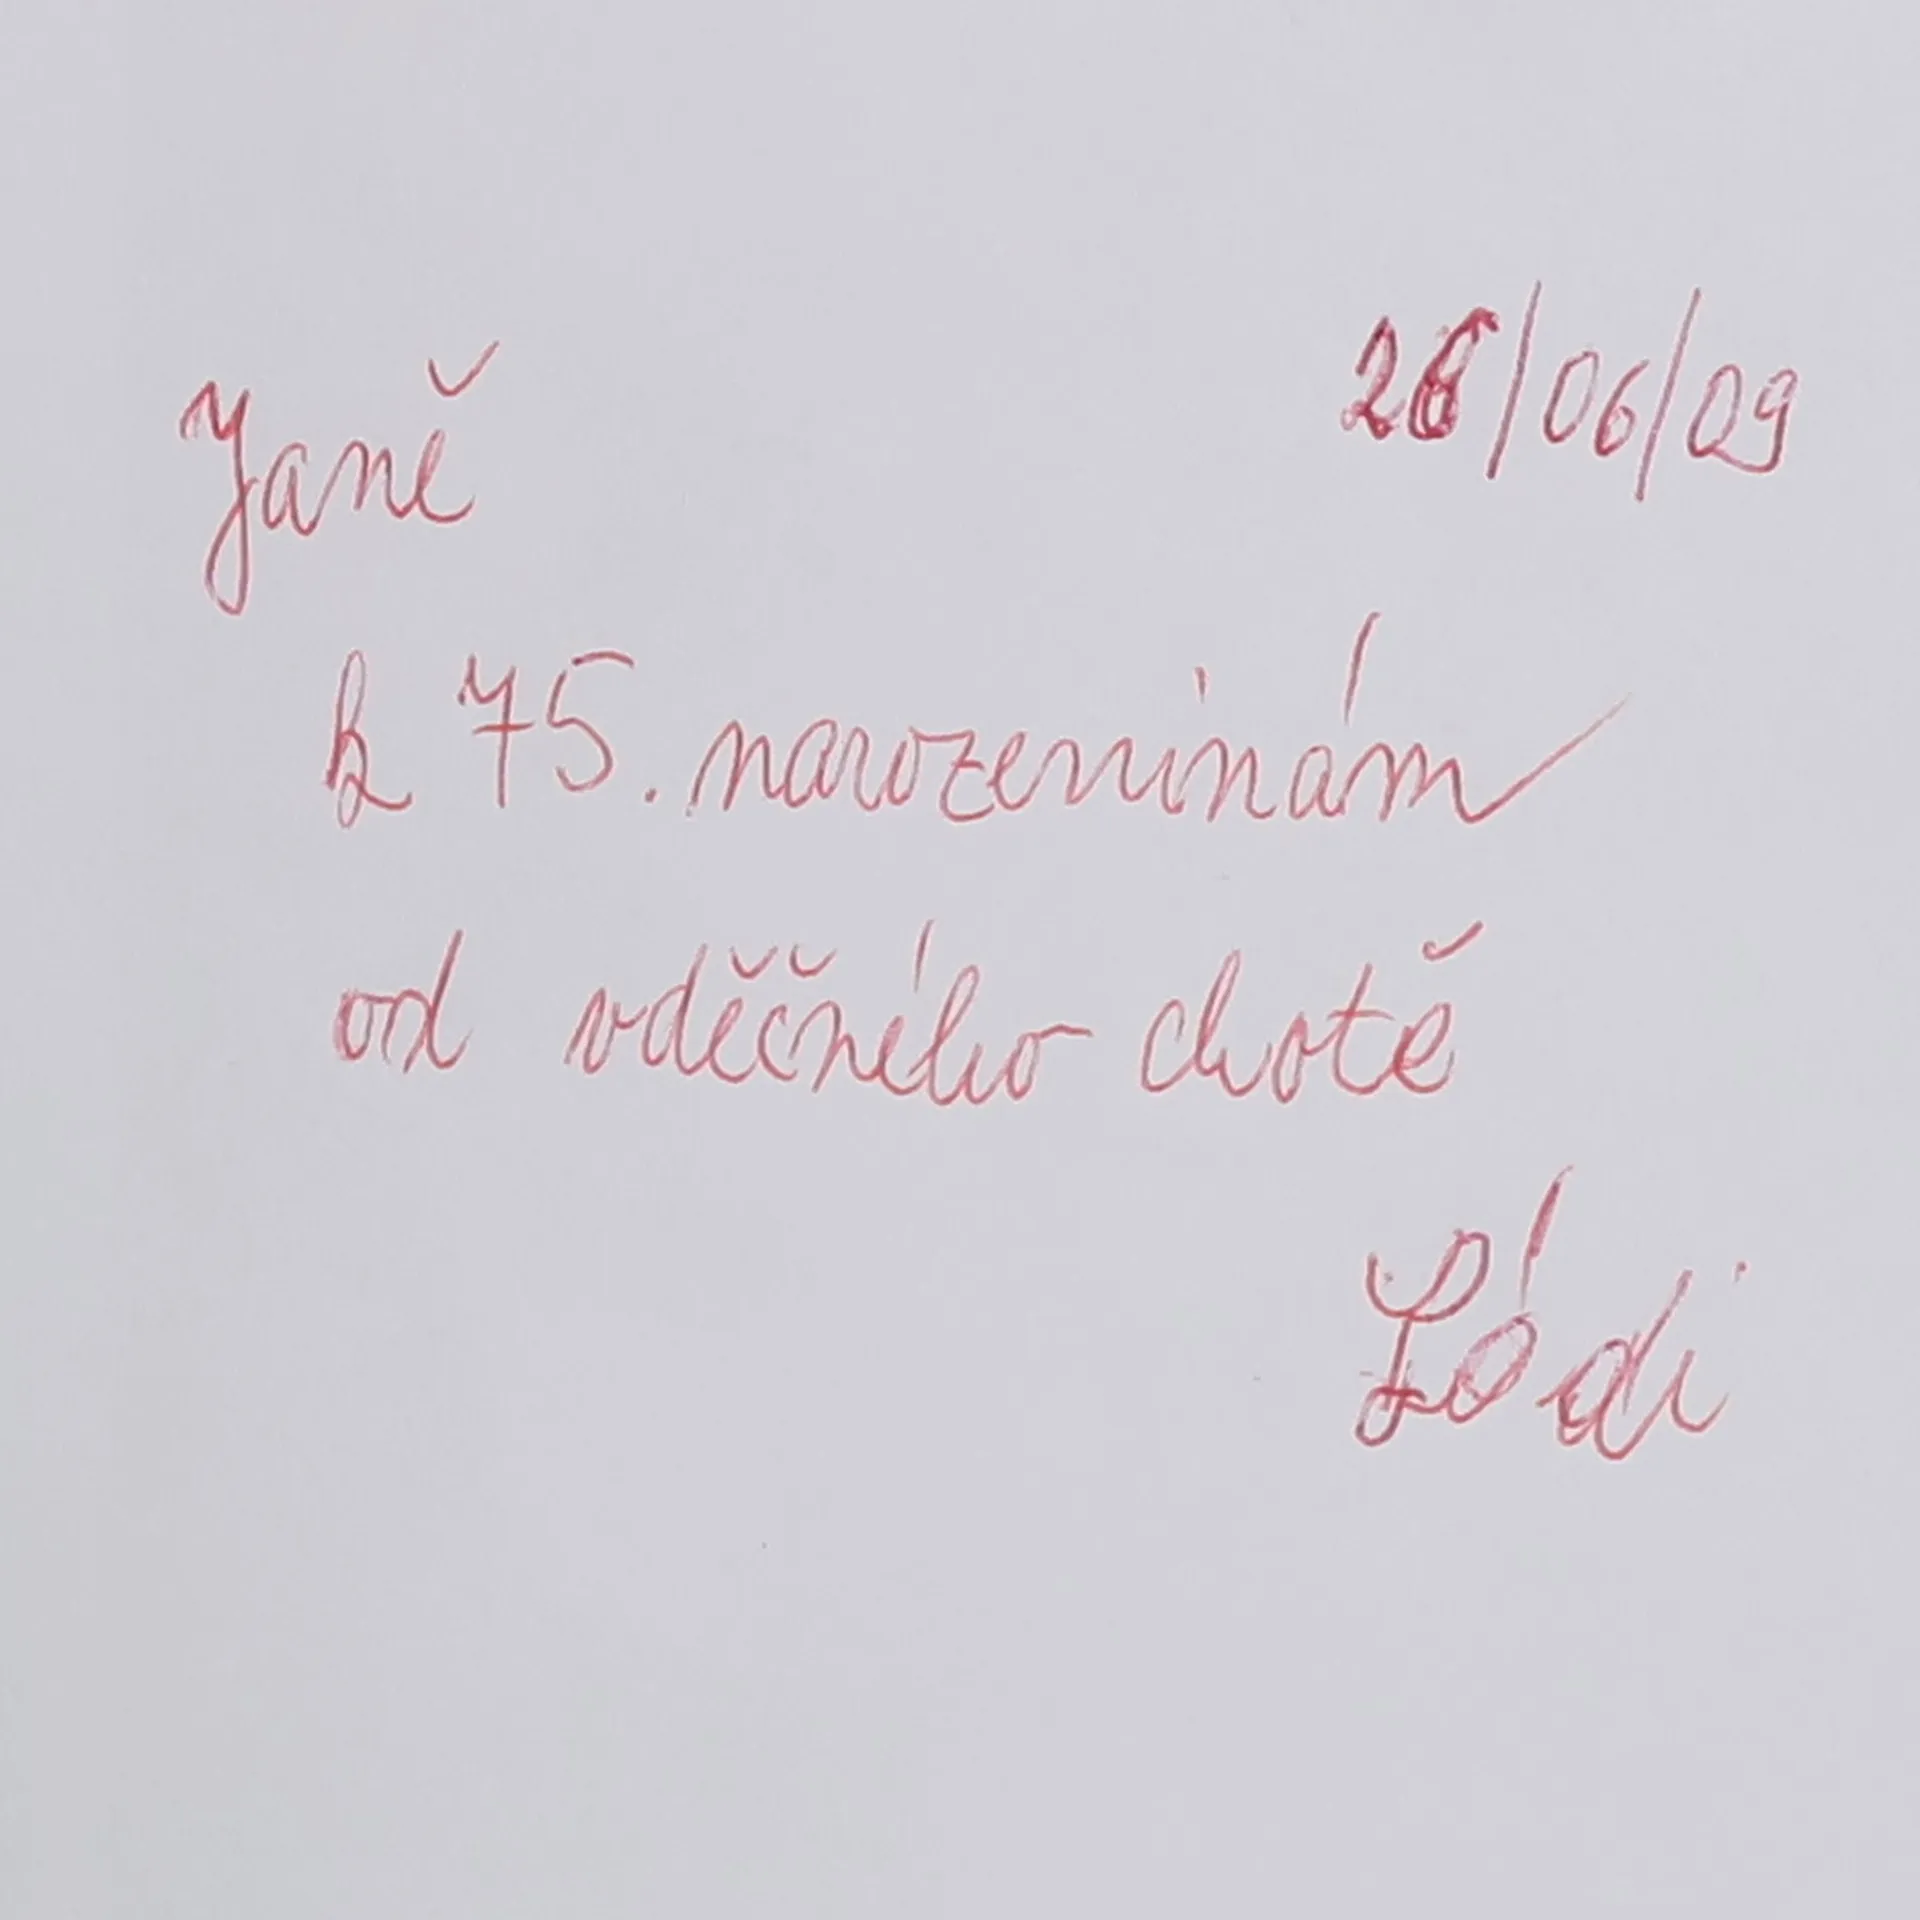 28/06/09
Janě
k 75. narozeninám
od vděčného chotě
Lódi